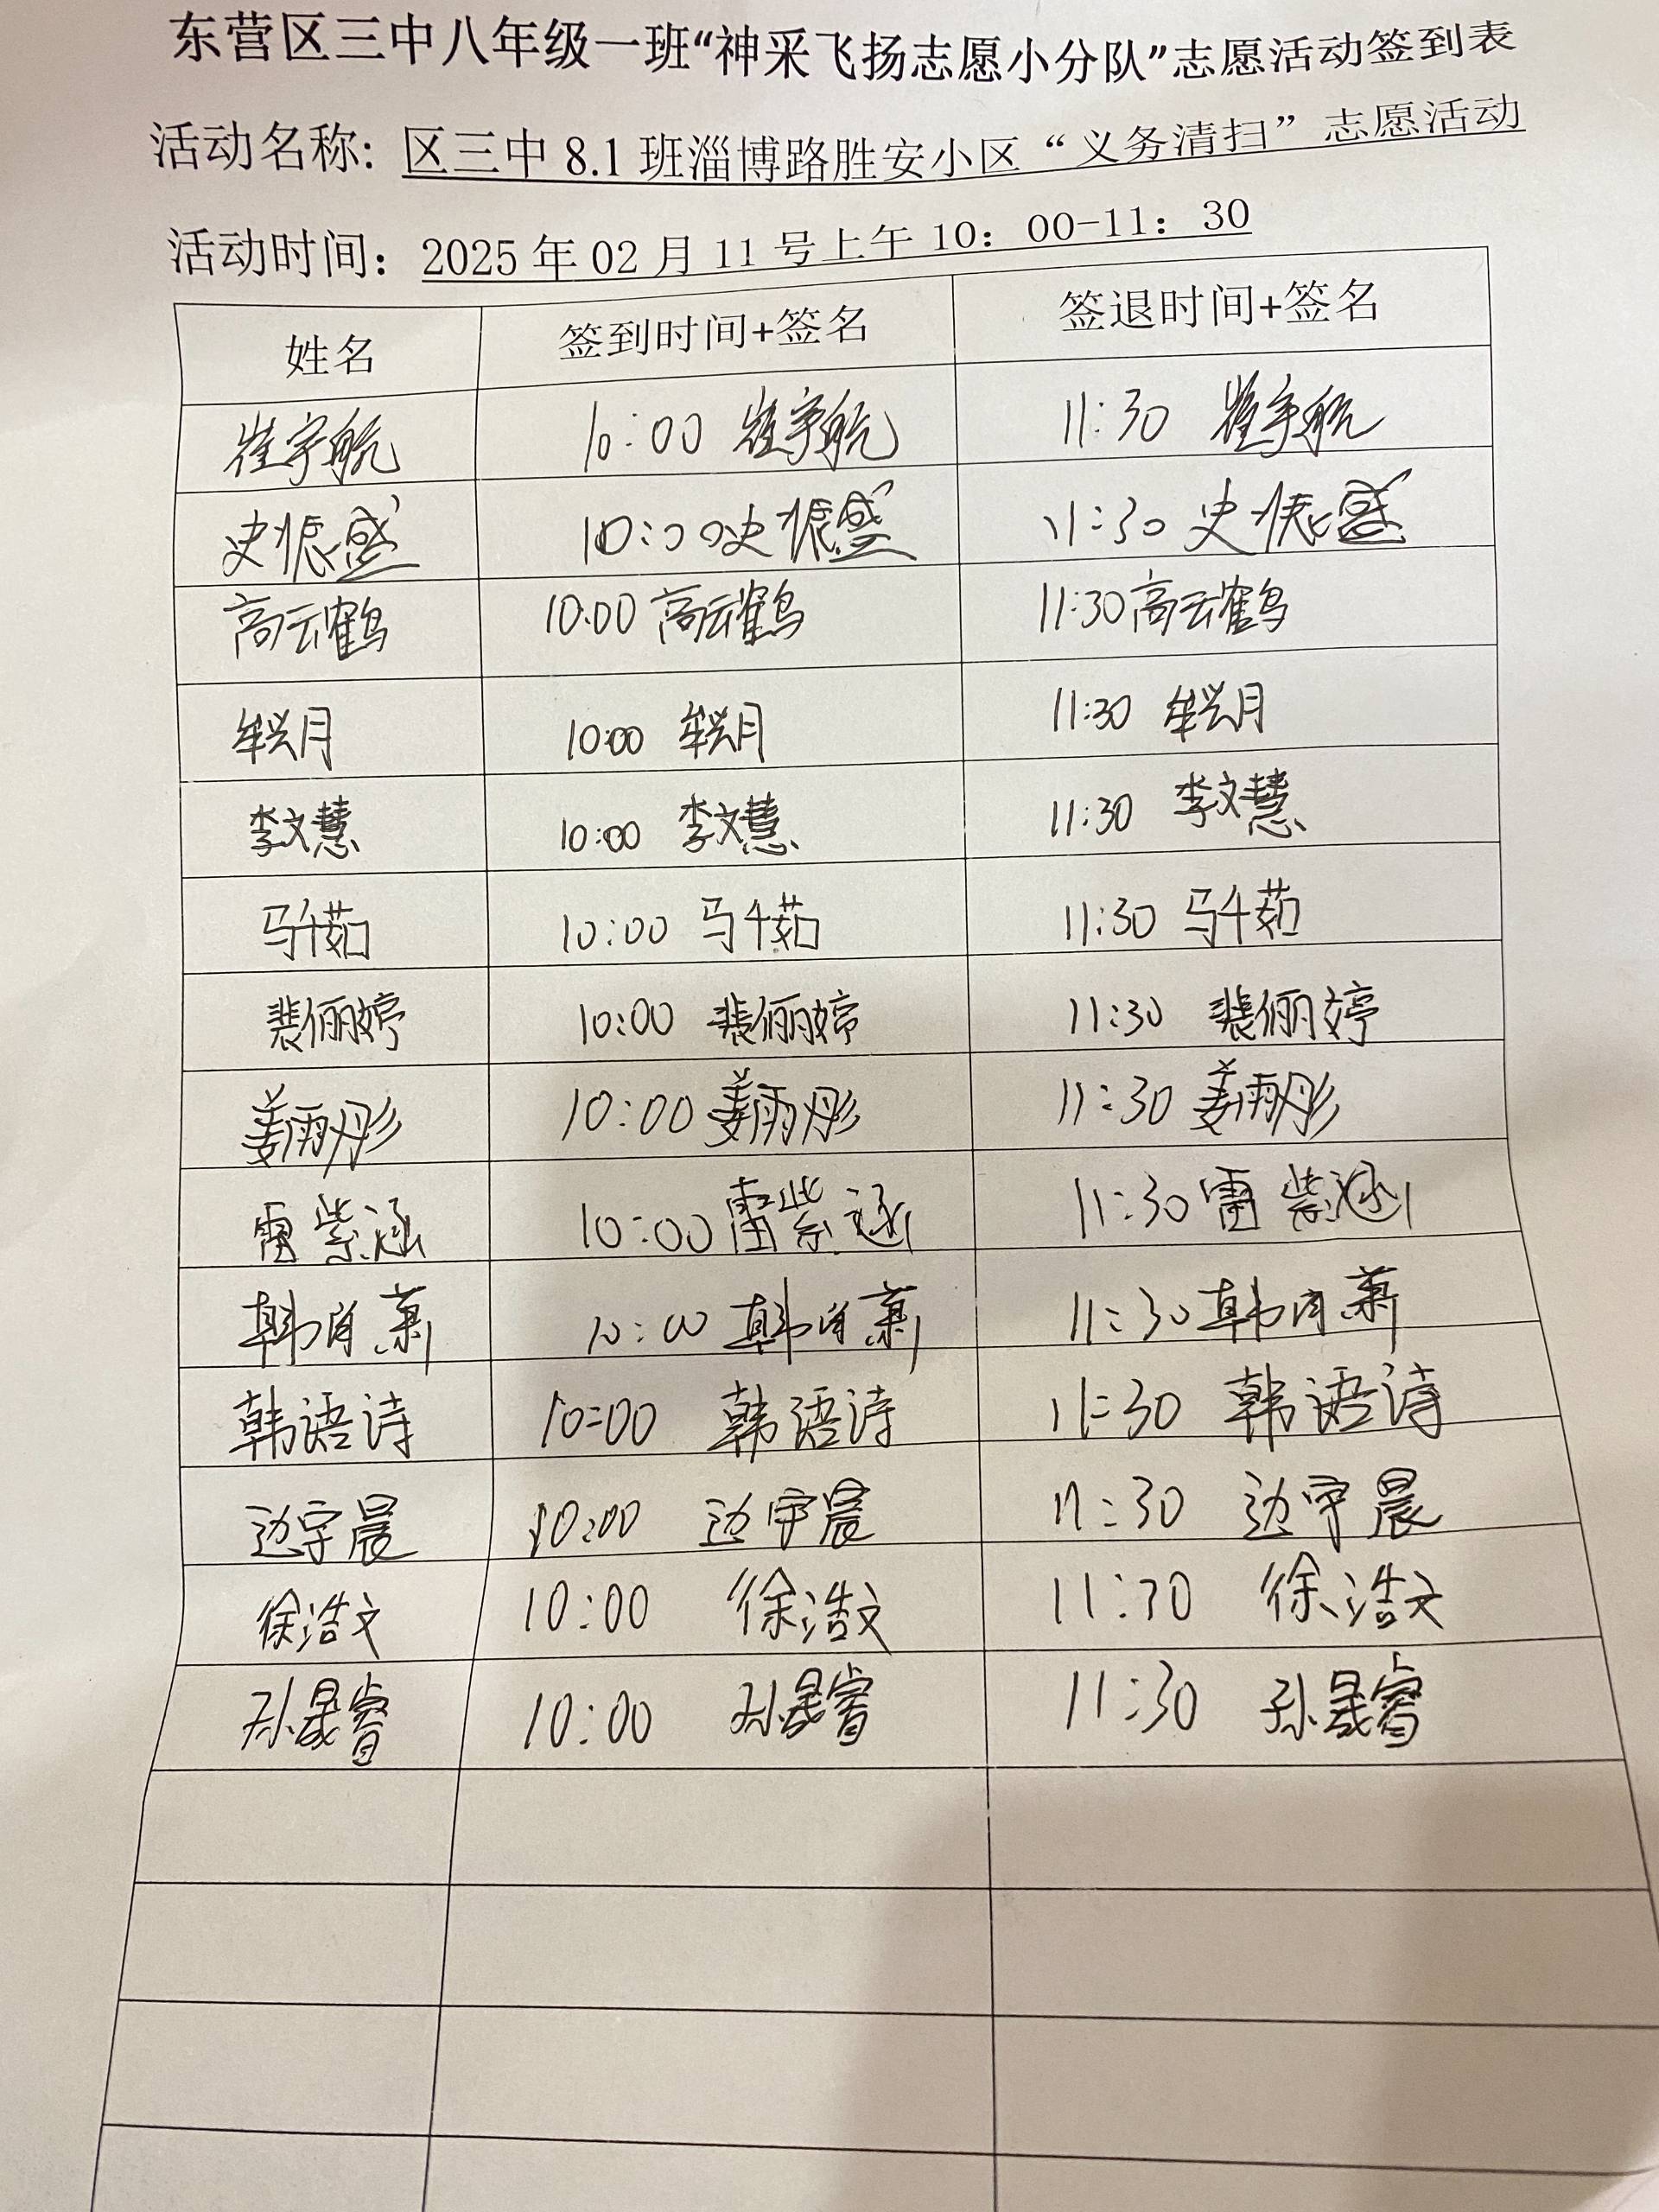 东营区三中八年级一班“神采飞扬志愿小分队”志愿活动签到表
活动名称: 区三中 8.1 班淄博路胜安小区“义务清扫”志愿活动
活动时间：2025 年 02 月 11 号上午 10：00-11：30
姓名 签到时间+签名 签退时间+签名
崔宇航 10:00 崔宇航 11:30 崔宇航
史振盛 10:00 史振盛 11:30 史振盛
高云鹤 10:00 高云鹤 11:30 高云鹤
牟兴月 10:00 牟兴月 11:30 牟兴月
李文慧 10:00 李文慧 11:30 李文慧
马千茹 10:00 马千茹 11:30 马千茹
裴俪婷 10:00 裴俪婷 11:30 裴俪婷
姜雨彤 10:00 姜雨彤 11:30 姜雨彤
雷紫涵 10:00 雷紫涵 11:30 雷紫涵
韩 10:00 韩 11:30 韩
韩语诗 10:00 韩语诗 11:30 韩语诗
边宇晨 10:00 边宇晨 11:30 边宇晨
徐浩文 10:00 徐浩文 11:30 徐浩文
孙晟睿 10:00 孙晟睿 11:30 孙晟睿